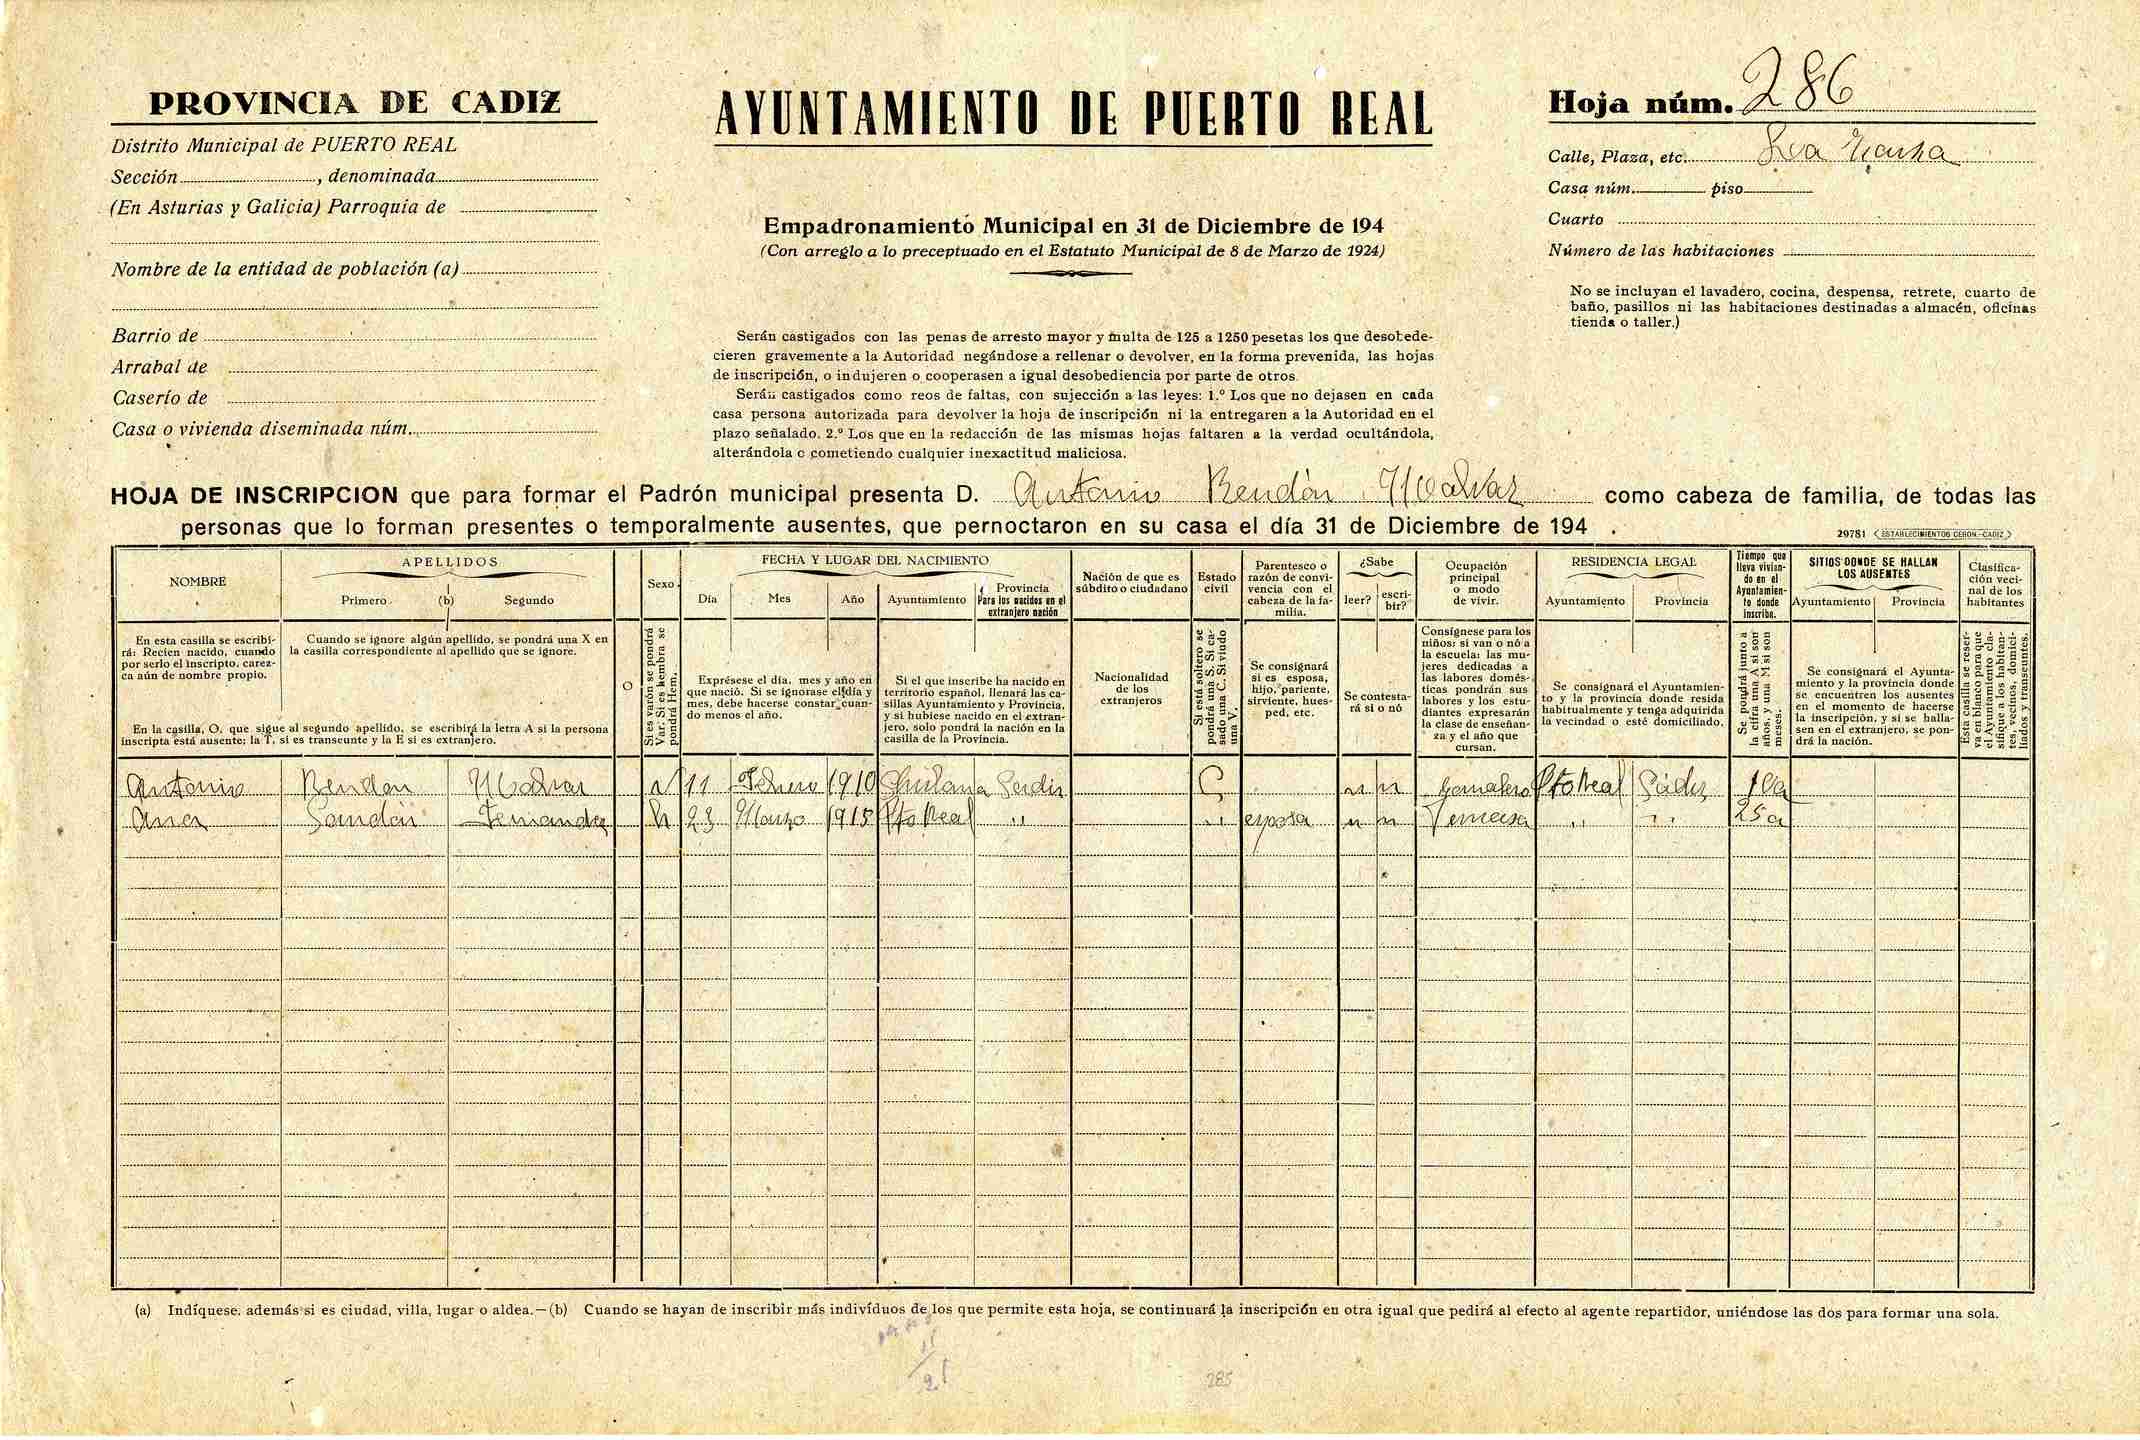 PROVINCIA DE CADIZ
Distrito Municipal de PUERTO REAL
Sección , denominada
(En Asturias y Galicia) Parroquia de
Nombre de la entidad de población (a)
Barrio de
Arrabal de
Caserío de
Casa o vivienda diseminada núm.
AYUNTAMIENTO DE PUERTO REAL
Empadronamiento Municipal en 31 de Diciembre de 194
(Con arreglo a lo preceptuado en el Estatuto Municipal de 8 de Marzo de 1924)
Serán castigados con las penas de arresto mayor y multa de 125 a 1250 pesetas los que desobede-
cieren gravemente a la Autoridad negándose a rellenar o devolver, en la forma prevenida, las hojas
de inscripción, o indujeren o cooperasen a igual desobediencia por parte de otros.
Serán castigados como reos de faltas, con sujección a las leyes: 1.º Los que no dejasen en cada
casa persona autorizada para devolver la hoja de inscripción ni la entregaren a la Autoridad en el
plazo señalado. 2.º Los que en la redacción de las mismas hojas faltaren a la verdad ocultándola,
alterándola o cometiendo cualquier inexactitud maliciosa.
Hoja núm. 286
Calle, Plaza, etc. La
Casa núm. piso
Cuarto
Número de las habitaciones
No se incluyan el lavadero, cocina, despensa, retrete, cuarto de
baño, pasillos ni las habitaciones destinadas a almacén, oficinas
tienda o taller.)
HOJA DE INSCRIPCION que para formar el Padrón municipal presenta D. Antonio Rendón como cabeza de familia, de todas las
personas que lo forman presentes o temporalmente ausentes, que pernoctaron en su casa el día 31 de Diciembre de 194 .
29781 ESTABLECIMIENTOS CERON.-CADIZ
NOMBRE
APELLIDOS
Primero (b) Segundo
Sexo
FECHA Y LUGAR DEL NACIMIENTO
Día Mes Año Ayuntamiento
Provincia
Para los nacidos en el
extranjero nación
Nación de que es
súbdito o ciudadano
Estado
civil
Parentesco o
razón de convi-
vencia con el
cabeza de la fa-
milia.
¿Sabe
leer? escri-
bir?
Ocupación
principal
o modo
de vivir.
RESIDENCIA LEGAL
Ayuntamiento Provincia
Tiempo que
lleva vivien-
do en el
Ayuntamien-
to donde
inscribe.
SITIOS DONDE SE HALLAN
LOS AUSENTES
Ayuntamiento Provincia
Clasifica-
ción veci-
nal de los
habitantes
En esta casilla se escribi-
rá: Recien nacido, cuando
por serlo el inscripto, carez-
ca aún de nombre propio.
Cuando se ignore algún apellido, se pondrá una X en
la casilla correspondiente al apellido que se ignore.
En la casilla, O, que sigue al segundo apellido, se escribirá la letra A si la persona
inscripta está ausente; la T, si es transeunte y la E si es extranjero.
O
Si es varón se pondrá
Var: Si es hembra se
pondrá Hem.
Exprésese el día, mes y año en
que nació. Si se ignorase el día y
mes, debe hacerse constar cuan-
do menos el año.
Si el que inscribe ha nacido en
territorio español, llenará las ca-
sillas Ayuntamiento y Provincia,
y si hubiese nacido en el extran-
jero, solo pondrá la nación en la
casilla de la Provincia.
Nacionalidad
de los
extranjeros
Si está soltero se
pondrá una S. Si ca-
sado una C. Si viudo
una V.
Se consignará
si es esposa,
hijo, pariente,
sirviente, hues-
ped, etc.
Se contesta-
rá si o nó
Consígnese para los
niños: si van o nó a
la escuela: las mu-
jeres dedicadas a
las labores domés-
ticas pondrán sus
labores y los estu-
diantes expresarán
la clase de enseñan-
za y el año que
cursan.
Se consignará el Ayuntamien-
to y la provincia donde resida
habitualmente y tenga adquirida
la vecindad o esté domiciliado.
Se pondrá junto a
la cifra una A si son
años, y una M si son
meses.
Se consignará el Ayunta-
miento y la provincia donde
se encuentren los ausentes
en el momento de hacerse
la inscripción, y si se halla-
sen en el extranjero, se pon-
drá la nación.
Esta casilla se reser-
va en blanco para que
el Ayuntamiento cla-
sifique a los habitan-
tes, vecinos, domici-
liados y transeuntes.
Antonio Rendon v 11 Febrero 1910 Cadiz C n n Jornalero Pto Real Cádiz 10a
Ana Fernandez h 23 Marzo 1915 Pto Real " " esposa n n " " 25 a
(a) Indíquese. además si es ciudad, villa, lugar o aldea.—(b) Cuando se hayan de inscribir más indivíduos de los que permite esta hoja, se continuará la inscripción en otra igual que pedirá al efecto al agente repartidor, uniéndose las dos para formar una sola.
285